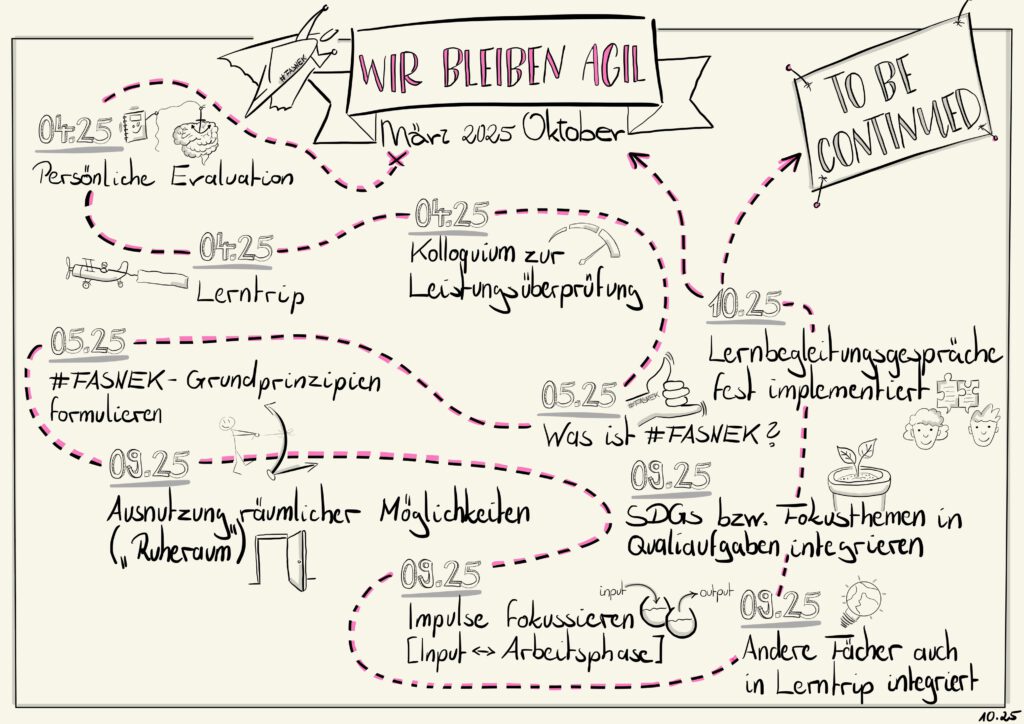 #FASNEK
WIR BLEIBEN AGIL
März 2025 Oktober
TO BE
CONTINUED
04.25
Persönliche Evaluation
04.25
Lerntrip
04.25
Kolloquium zur
Leistungsüberprüfung
05.25
#FASNEK - Grundprinzipien
formulieren
05.25
#FASNEK
Was ist #FASNEK?
09.25
Ausnutzung räumlicher Möglichkeiten
(„Ruheraum")
09.25
Impulse fokussieren
[Input ↔ Arbeitsphase]
input
output
09.25
Andere Fächer auch
in Lerntrip integriert
09.25
SDGs bzw. Fokusthemen in
Qualiaufgaben integrieren
10.25
Lernbegleitungsgespräche
fest implementiert
10.25